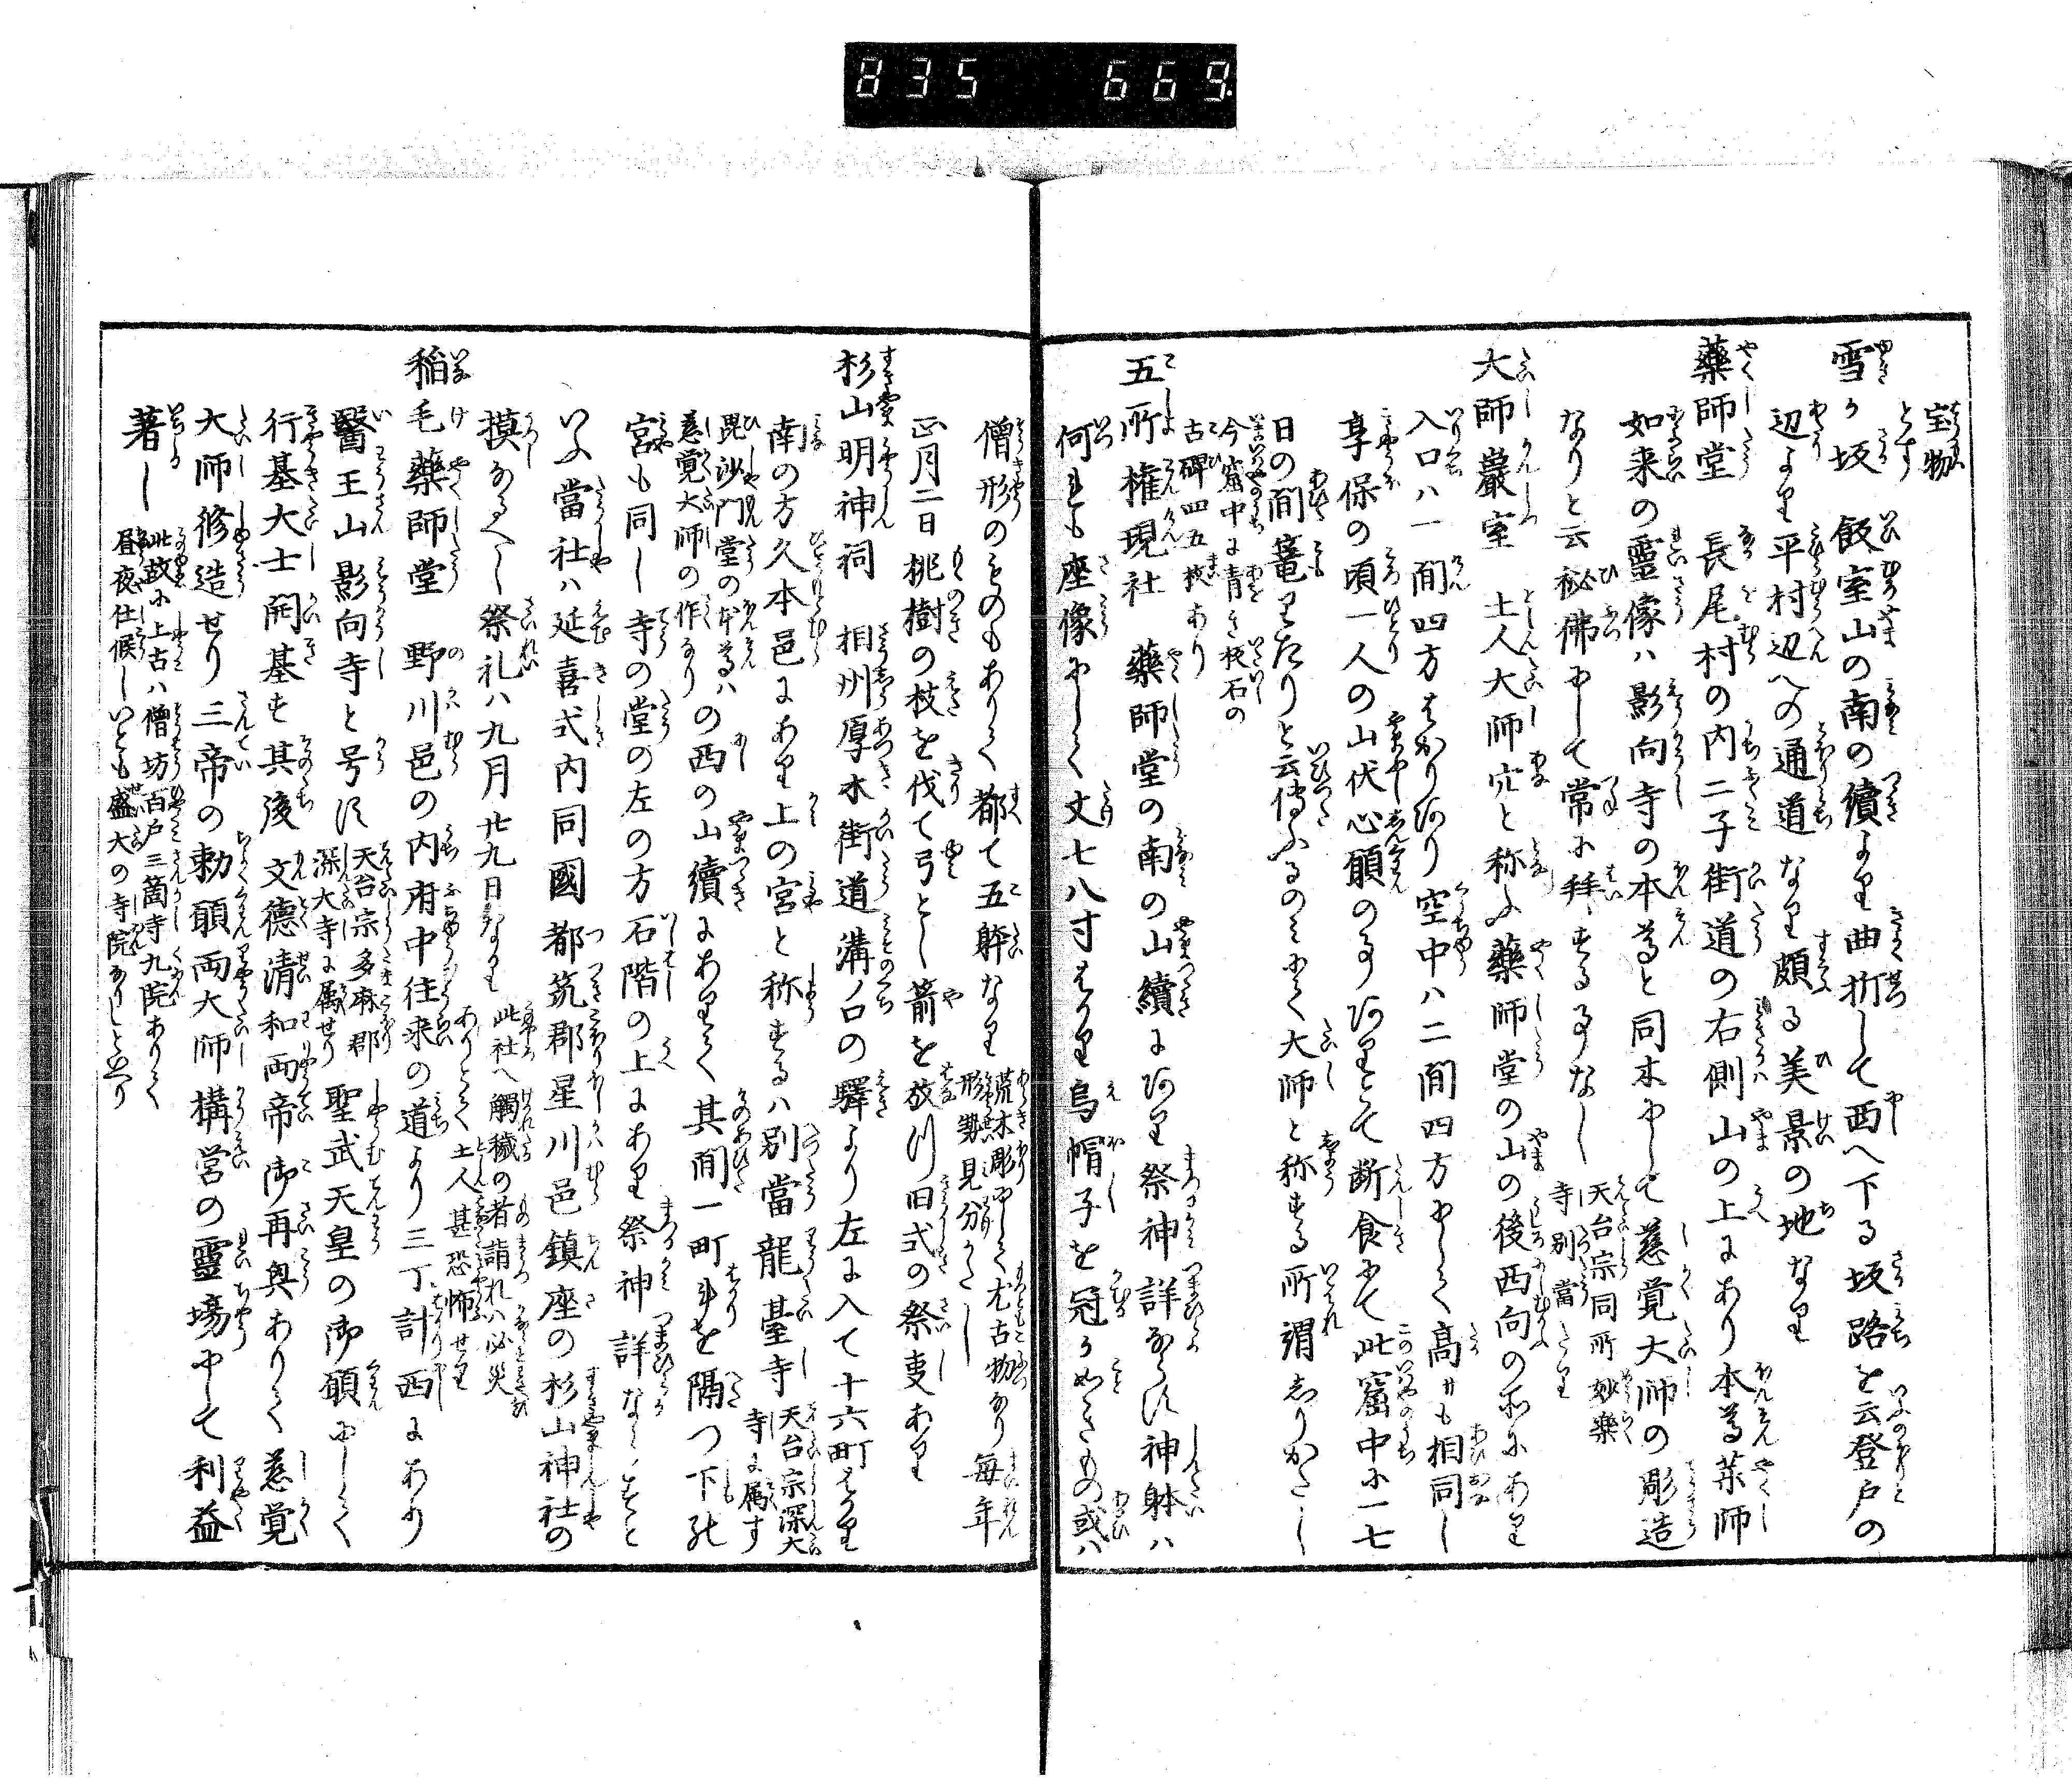 835 669
宝物
とす
雪か坂 飯室山の南の續より曲折して西へ下る坂路を云登戸の
辺より平村辺への通道なり頗る美景の地なり
藥師堂 長尾村の内二子街道の右側山の上にあり本尊薬師
如来の靈像ハ影向寺の本尊と同木にして慈覚大師の彫造
なりと云秘佛にして常に拝する事なし 天台宗同所妙樂
寺別當たり
大師巖室 土人大師穴と称ふ藥師堂の山の後西向の所にあり
入口ハ一間四方はかりあり空中ハ二間四方にして高サも相同し
享保の頃一人の山伏心願の事ありとて断食にて此窟中に一七
日の間篭りたりと云傳ふるのミにて大師と称する所謂しりかたし
今窟中に青き板石の
古碑四五枚あり
五所権現社 藥師堂の南の山續にあり祭神詳ならす神躰ハ
何れも座像にして丈七八寸はかり烏帽子を冠るかことき もの或ハ
僧形のものもありて都て五躰なり 荒木彫にして尤古物なり
形勢見分かたし 毎年
正月二日桃樹の枝を伐て弓とし箭を放つ旧式の祭事あり
杉山明神祠 相州厚木街道溝ノ口の驛より左に入て十六町はかり
南の方久本邑にあり上の宮と称するハ別當龍臺寺 天台宗深大
寺に属す
毘沙門堂の本尊ハ
慈覚大師の作なり の西の山續にありて其間一町許を隔つ下の
宮も同し寺の堂の左の方石階の上にあり祭神詳ならすと
いふ當社ハ延喜式内同國都筑郡星川邑鎮座の杉山神社の
摸なるへし祭礼ハ九月廿九日なり 此社へ觸穢の者詣れハ必災
ありとて土人甚恐怖せり
稲毛藥師堂 野川邑の内府中往来の道より三丁計西にあり
醫王山影向寺と号す 天台宗多麻郡
深大寺に属せり 聖武天皇の御願にして
行基大士開基す其後 文德清和両帝御再興ありて慈覚
大師修造せり三帝の勅願両大師構営の靈場にして利益
著し 此故に上古ハ僧坊百戸三箇寺九院ありて
昼夜仕候しいとも盛大の寺院なりしと云り